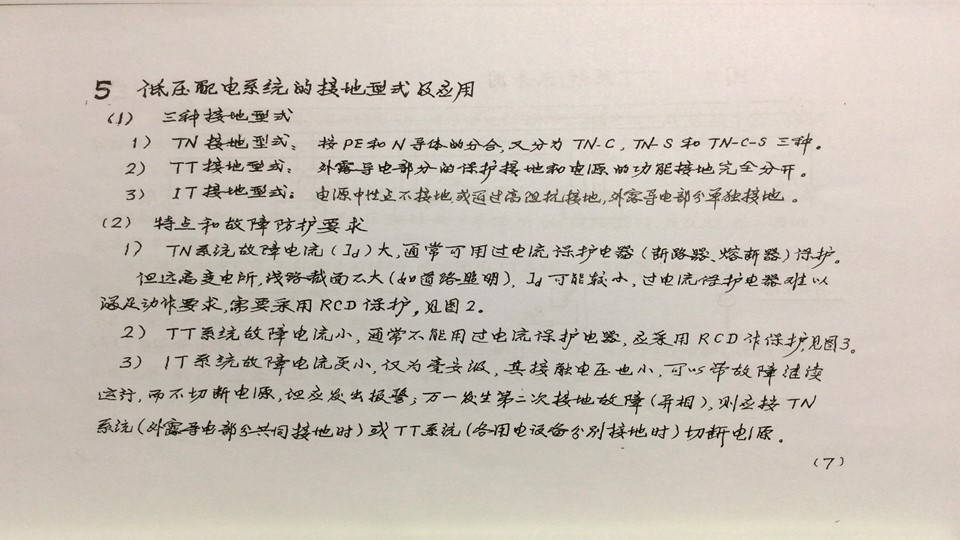 5 低压配电系统的接地型式及应用
(1) 三种接地型式
1) TN接地型式: 按PE和N导体的分合,又分为TN-C, TN-S和TN-C-S三种。
2) TT接地型式: 外露导电部分的保护接地和电源的功能接地完全分开。
3) IT接地型式: 电源中性点不接地或通过高阻抗接地,外露导电部分单独接地。
(2) 特点和故障防护要求
1) TN系统故障电流(Id)大,通常可用过电流保护电器(断路器、熔断器)保护。
但远离变电所,线路截面不大(如道路照明), Id可能较小,过电流保护电器难以
满足动作要求,需要采用RCD保护,见图2。
2) TT系统故障电流小,通常不能用过电流保护电器,应采用RCD作保护,见图3。
3) IT系统故障电流更小,仅为毫安级,其接触电压也小,可以带故障继续
运行,而不切断电源,但应发出报警;万一发生第二次接地故障(异相),则应按TN
系统(外露导电部分共同接地时)或TT系统(各用电设备分别接地时)切断电源。
(7)